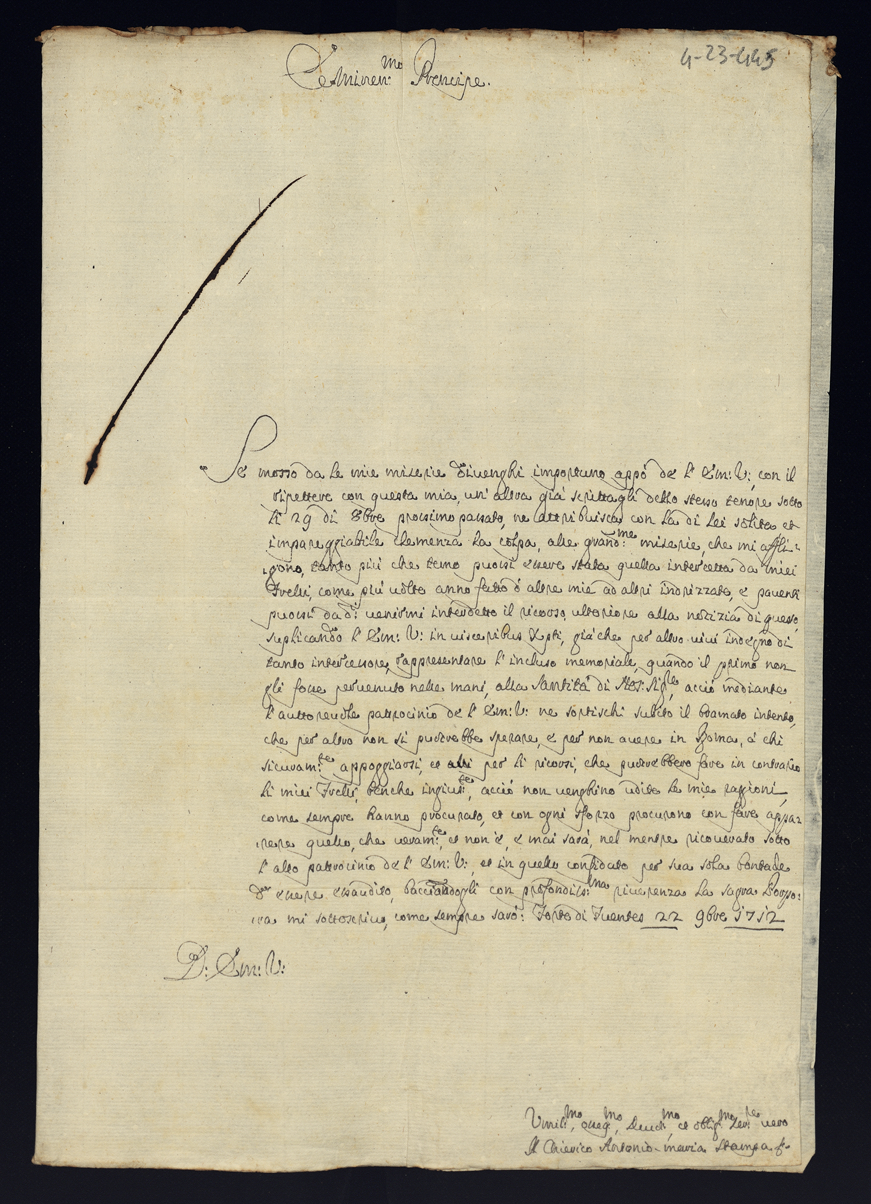 4-23-445
Eminen:mo Prencipe.
Se mosso da le mie miserie divenghi importuno appo de l' Em: V: con il
ripettere con questa mia, un' altra già scrittagli dello stesso tenore sotto
li 29 di 8bre prossimo passato, ne attribuisca con la di Lei solita et
impareggiabile clemenza la colpa, alle grand:me miserie, che mi affli-
gono, tanto più che temo puossi essere stata quella intercetta da miei
Frelli, come più volte anno fatto d' altre mie ad altri indrizzate, e paventi
puossi da d:i venirmi interdetto il ricorso ulteriore alla notizia di questo,
suplicando l' Em: V: in visceribus Xpti, già che per altro vivi indegno di
tanto intercessore, rappresentare l' incluso memoriale, quando il primo non
gli fosse pervenuto nelle mani, alla Santità di Nos: Sigre, acciò mediante
l' auttorevole patrocinio de l' Em: V: ne sortischi subito il bramato intento,
che per altro non si puotrebbe sperare, e per non avere in Roma, à chi
sicuram:te appoggiarsi, et altri per li ricorsi, che puotrebbero fare in contrario
li miei Frelli, benche ingius:te, acciò non venghino udite le mie raggioni,
come sempre hanno procurato, et con ogni sforzo procurono con fare appa-
rere quello, che veram:te, et non è, e mai sarà, nel mentre ricoverato sotto
l' alto patrocinio de l' Em: V:, et in quello confidato per sua sola bontade
d' essere esaudito, bacciandogli con profondis:ma riverenza la sagra Porpo-
ra mi sottoscrivo, come sempre sarò: Forte di Fuentes 22 9bre 1712
D: Em: V:
Umilmo, osseqmo, Devotmo et obligmo Serre vero
Il Chierico Antonio-maria Stampa